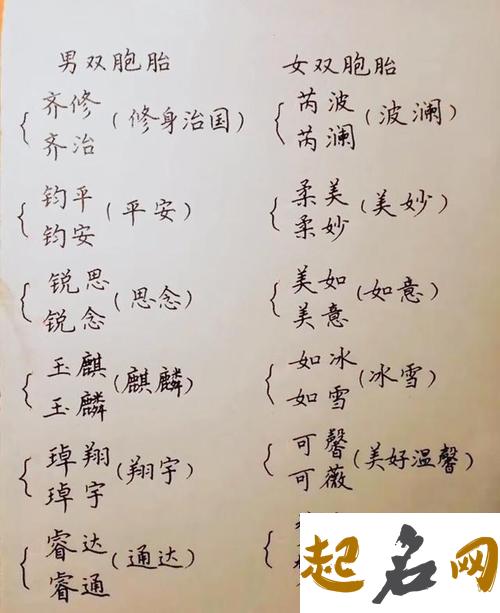 男双胞胎
齐修
齐治
(修身治国)
钧平
钧安
(平安)
锐思
锐念
(思念)
玉麒
玉麟
(麒麟)
琸翔
琸宇
(翔宇)
睿达
睿通
(通达)
女双胞胎
芮波
芮澜
(波澜)
柔美
柔妙
(美妙)
美如
美意
(如意)
如冰
如雪
(冰雪)
可馨
可薇
(美好温馨)
起名网